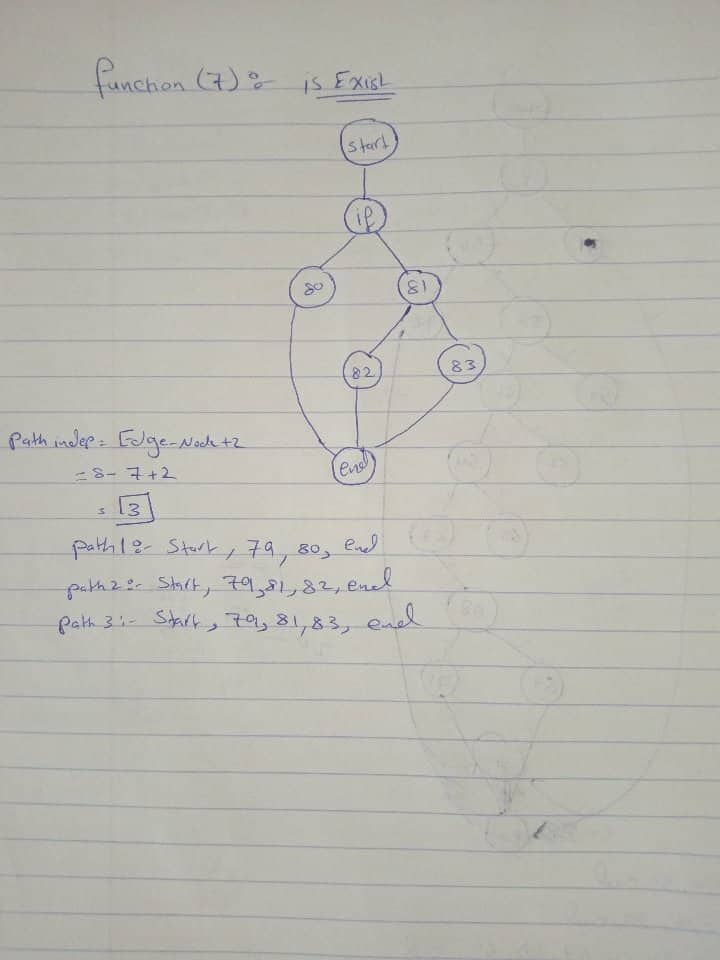 function (7) :- is Exist
start
if
80 81
82 83
end
Path indep = Edge - Node + 2
= 8 - 7 + 2
= 3
path 1 :- Start, 79, 80, end
path 2 :- Start, 79, 81, 82, end
path 3 :- Start, 79, 81, 83, end